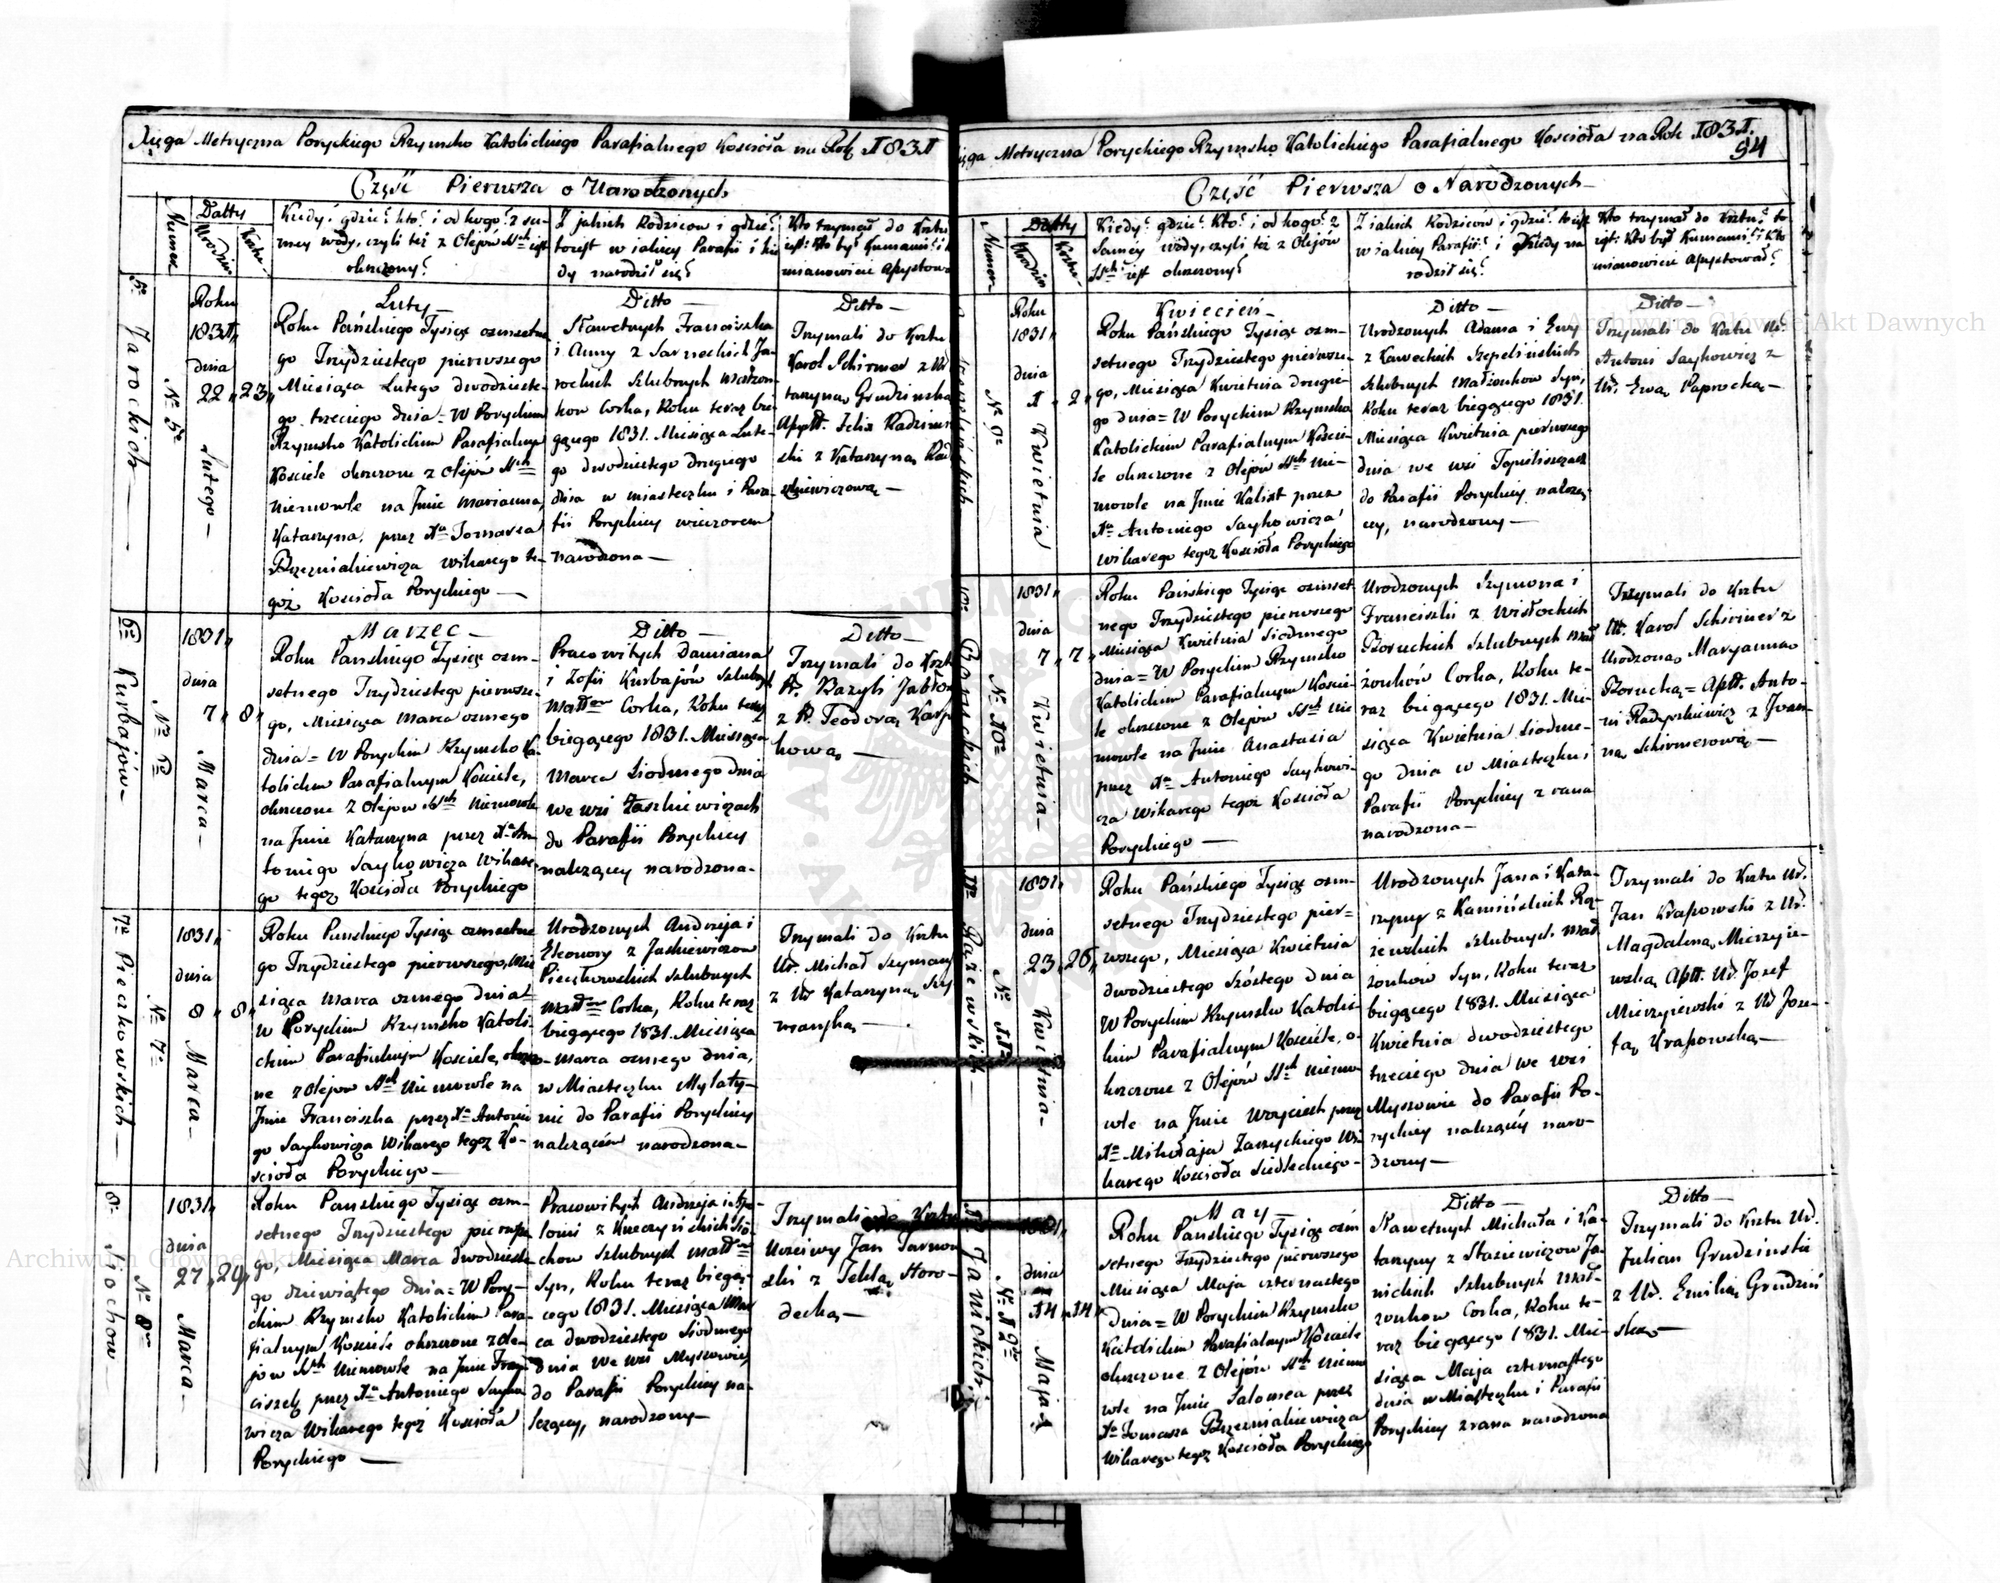 Xięga Metryczna Poryckiego Rzymsko Katolickiego Parafialnego Kościoła na Rok 1831
Część Pierwsza o Narodzonych
Numer
Datty
Urodzin
Krztu
Kiedy? gdzie? kto? i od kogo? z sa-
mey wody, czyli też z Olejów SSch iest
okrzczony?
Z jakich Rodziców i gdzie?
toiest w iakiey Parafii i kie
dy narodził się?
Kto trzymał do Krztu
iest: Kto był Kumami? i
mianowicie assystował
5o Jarockich
No 5o
Roku
1831
dnia
22 23
Lutego
Luty
Roku Pańskiego Tysiąc osmsetne
go Trzydziestego pierwszego
Miesiąca Lutego dwodzieste-
go trzeciego dnia = W Poryckim
Rzymsko Katolickim Parafialnym
Kościele okrzczone z Olejów SSch
niemowle na Jmie Marianna
Katarzyna, przez Xa Tomasza
Brzezniakiewicza wikarego te-
goż Kościoła Poryckiego
Ditto
Sławetnych Franciszka
i Anny z Sarneckich Ja-
rockich Szlubnych Małżon-
kow Corka, Roku teraz bie
gącego 1831. Miesiąca Lute-
go dwodziestego drugiego
dnia w miasteczku i Para-
fii Poryckiey wieczorem
narodzona
Ditto
Trzymali do Krztu
Karol Schirmer z Ka
tarzyną Grudzinską
Asystt. Felix Radzimi
ski z Katarzyną Rad
kiewiczową
6o Kurbajów
No 6o
1831
dnia
7 8
Marca
Marzec
Roku Pańskiego Tysiąc osm-
setnego Trzydziestego pierwsze-
go, Miesiąca Marca osmego
dnia = W Poryckim Rzymsko Ka-
tolickim Parafialnym Kościele,
okrzczone z Olejow SSch Niemowle
na Jmie Katarzyna przez Xa An
toniego Saykowicza Wikare-
go tegoż Kościoła Poryckiego
Ditto
Pracowitych Damiana
i Zofii Kurbajów Szlubnych
Małżon Corka, Roku teraz
bieg̨ącego 1831. Miesiąca
Marca Siodmego dnia
we wsi Zaszkiewiczach
do Parafii Poryckiey
należącey narodzona.
Ditto
Trzymali do Krztu
P. Bazyli Jabłon
z P. Teodorą Karp
kową
7o Pieczkowskich
No 7o
1831
dnia
8 8
Marca
Roku Pańskiego Tysiąc osmsetne
go Trzydziestego pierwszego, Mie
siąca Marca osmego dnia =
W Poryckim Rzymsko Katoli-
ckim Parafialnym Kościele, okrzczo
ne z Olejow SSch Niemowle na
Jmie Franciszka przez Xa Antonie
go Saykowicza Wikarego tegoż Ko-
scioła Poryckiego
Urodzonych Andrzeja i
Eleonory z Jaskiewiczow
Pieczkowskich Szlubnych
Małżon Corka, Roku teraz
bieg̨ącego 1831. Miesiąca
Marca osmego dnia,
w Miasteczku Mylaty-
nie do Parafii Poryckiey
należącém narodzona
Trzymali do Krztu
Ur. Michał Szymany
z Ur. Katarzyną Szy
manską
8o
No 8o
1831
dnia
27 29
Marca
Roku Pańskiego Tysiąc osm-
setnego Trzydziestego pierwsze
go, Miesiąca Marca dwodzieste
go dziewiątego dnia = W Pory-
ckim Rzymsko Katolickim Para-
fialnym Kościele okrzczone z Ole-
jów SSch Niemowle na Jmie Fran
ciszek przez Xa Antoniego Sayko
wicza Wikarego tegoż Kościoła
Poryckiego
Pracowitych Andrzeja i Apo-
lonii z
chow Szlubnych Małżon
Syn, Roku teraz biegą-
cego 1831. Miesiąca Mar
ca dwodziestego Siodmego
dnia we wsi Myszowie
do Parafii Poryckiey na-
leżącey, narodzony
Trzymali do Krztu
Uczciwy Jan Tarnow
ski z Teklą Horo-
decką
Xięga Metryczna Poryckiego Rzymsko Katolickiego Parafialnego Kościoła na Rok 1831.
94
Część Pierwsza o Narodzonych
Numer
Datty
Urodzin
Krztu
Kiedy? gdzie? Kto? i od kogo? z
Samey wody, czyli też z Olejów
SSch iest okrzczony?
Z iakich Rodziców i gdzie? to iest
w iakiey Parafii? i kiedy na
rodził się?
Kto trzymał do Krztu? to
iest: Kto był Kumami? i kto
mianowicie assystował?
Szepelińskich
No 9o
Roku
1831
dnia
1 2
Kwietnia
Kwiecień
Roku Pańskiego Tysiąc osm-
setnego Trzydziestego pierwsze-
go, Miesiąca Kwietnia drugie-
go dnia = W Poryckim Rzymsko
Katolickim Parafialnym Koście-
le okrzczone z Olejów SSch Nie-
mowle na Jmie Kalixt przez
Xa Antoniego Saykowicza
wikarego tegoż Kościoła Poryckiego
Ditto
Urodzonych Adama i Ewy
z Kaweckich Szepelińskich
Szlubnych Małżonkow Syn,
Roku teraz bieg̨ącego 1831.
Miesiąca Kwietnia pierwszego
dnia we wsi Topiliszczach
do Parafii Poryckiey należą
cey, narodzony
Ditto
Trzymali do Krztu Ur.
Antoni Saykowicz z
Ur. Ewą Paprocką
10o Boruckich
No 10o
1831
dnia
7 7
Kwietnia
Roku Pańskiego Tysiąc osmset
nego Trzydziestego pierwszego
Miesiąca Kwietnia Siodmego
dnia = W Poryckim Rzymsko
Katolickim Parafialnym Koście
le okrzczone z Olejów SSch Nie
mowle na Jmie Anastazia
przez Xa Antoniego Saykowi-
cza Wikarego tegoż Kościoła
Poryckiego
Urodzonych Szymona i
Franciszki z Wisłockich
Boruckich Szlubnych Mał
żonków Corka, Roku te-
raz bieg̨ącego 1831. Mie-
siąca Kwietnia Siodme-
go dnia w Miasteczku i
Parafii Poryckiey z rana
narodzona
Trzymali do Krztu
Ur. Karol Schirmer z
Urodzoną Maryanną
Borucką = Aystt. Anto-
ni Radyszkiewicz z Joan-
ną Schirmerową
11o Rążewskich
No 11o
1831
dnia
23 26
Kwietnia
Roku Pańskiego Tysiąc osm-
setnego Trzydziestego pier-
wszego, Miesiąca Kwietnia
dwodziestego Szóstego dnia
W Poryckim Rzymsko Katolic-
kim Parafialnym Kościele, o-
krzczone z Olejów SSch niemo
wle na Jmie Woyciech przez
Xa Mikołaja Zarzyckiego Wi-
karego Kościoła Siedleckiego
Urodzonych Jana i Kata-
rzyny z Kamińskich Rą-
żewskich Szlubnych Mał
żonkow Syn, Roku teraz
bieg̨ącego 1831. Miesiąca
Kwietnia dwodziestego
trzeciego dnia we wsi
Myszowie do Parafii Po-
ryckiey należącéy naro-
dzony
Trzymali do Krztu Ur.
Jan Krassowski z Ur.
Magdaleną Mierzyie-
wską Aystt. Ur. Jozef
Mierzyiewski z Ur Joze-
fą Krassowską
12o Janickich
No 12o
1831
dnia
14 14
Maja
May
Roku Pańskiego Tysiąc osm
setnego Trzydziestego pierwszego
Miesiąca Maja czternastego
Dnia = W Poryckim Rzymsko
Katolickim Parafialnym Kościele
okrzczone z Olejów SSch Niemo
wle na Jmie Salomea przez
Xa Tomasza Brzezniakiewicza
Wikarego tegoż Kościoła Poryckiego
Ditto
Sławetnych Michała i Ka-
tarzyny z Stasiewiczow Ja-
nickich Szlubnych Mał-
żonkow Corka, Roku te-
raz bieg̨ącego 1831. Mie-
siąca Maja czternastego
dnia w Miasteczku i Parafii
Poryckiey z rana narodzona
Ditto
Trzymali do Krztu Ur.
Julian Grudzinski
z Ur. Emilią Grudziń
ską
Archiwum Główne Akt Dawnych
Archiwum Główne Akt Dawnych